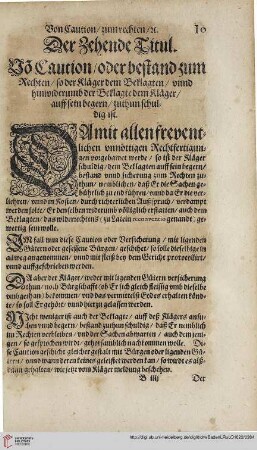 Von Caution / zum rechten / ec. 10
Der Zehende Titul.
Võ Caution / oder bestand zum
Rechten / so der Kläger dem Beklagten / vnnd
hinwiderumb der Beklagte dem Kläger /
auff sein begern / zuthun schul-
dig ist.
Damit allen freuent-
lichen vnnötigen Rechtfertigun-
gen vorgebawet werde / so ist der Kläger
schuldig / dem Beklagten auff sein begern /
bestand vnnd sicherung zum Rechten zu-
thun / nemblichen / daß Er die Sachen ge-
bührlich zu end führen / vnnd da Er die ver-
liehren / vnnd in Kosten / durch richterlichen Außspruch / verdampt
werden solte / Er denselben widerumb völliglich erstatten / auch dem
Beklagten / das widerrechtens / zu Latein genandt / ge-
wertig sein wolle.
IM fall nun diese Caution oder Versicherung / mit ligenden
Gütern oder gesessene Bürgen / geschihet / so solle dieselbige in
allweg angenommen / vnnd mit fleiß bey dem Gericht prothocollirt /
vnnd auffgeschrieben werden.
Da aber der Kläger / weder mit ligenden Gütern versicherung
zuthun / noch Bürgschafft / ob Er sich gleich fleissig vmb dieselbe
umbgethan / bekommen / vnd das vermittelst Eydes erhalten könd-
te / so soll Er gehört / vnnd hierzu gelassen werden.
NIcht weniger ist auch der Beklagte / auff deß Klägers ansu-
chen vnnd begern / bestand zuthun schuldig / daß Er nemblich
im Rechten verbleiben / vnd der Sachen abwarten / auch dem jeni-
gen / so gesprochen wirdt / gehorsamlich nachkommen wolle. Di-
se Caution geschicht gleicher gestalt mit Bürgen oder ligenden Gü-
tern /
gehalten / wie jetzt vom Kläger meldung beschehen.
B iiij Der